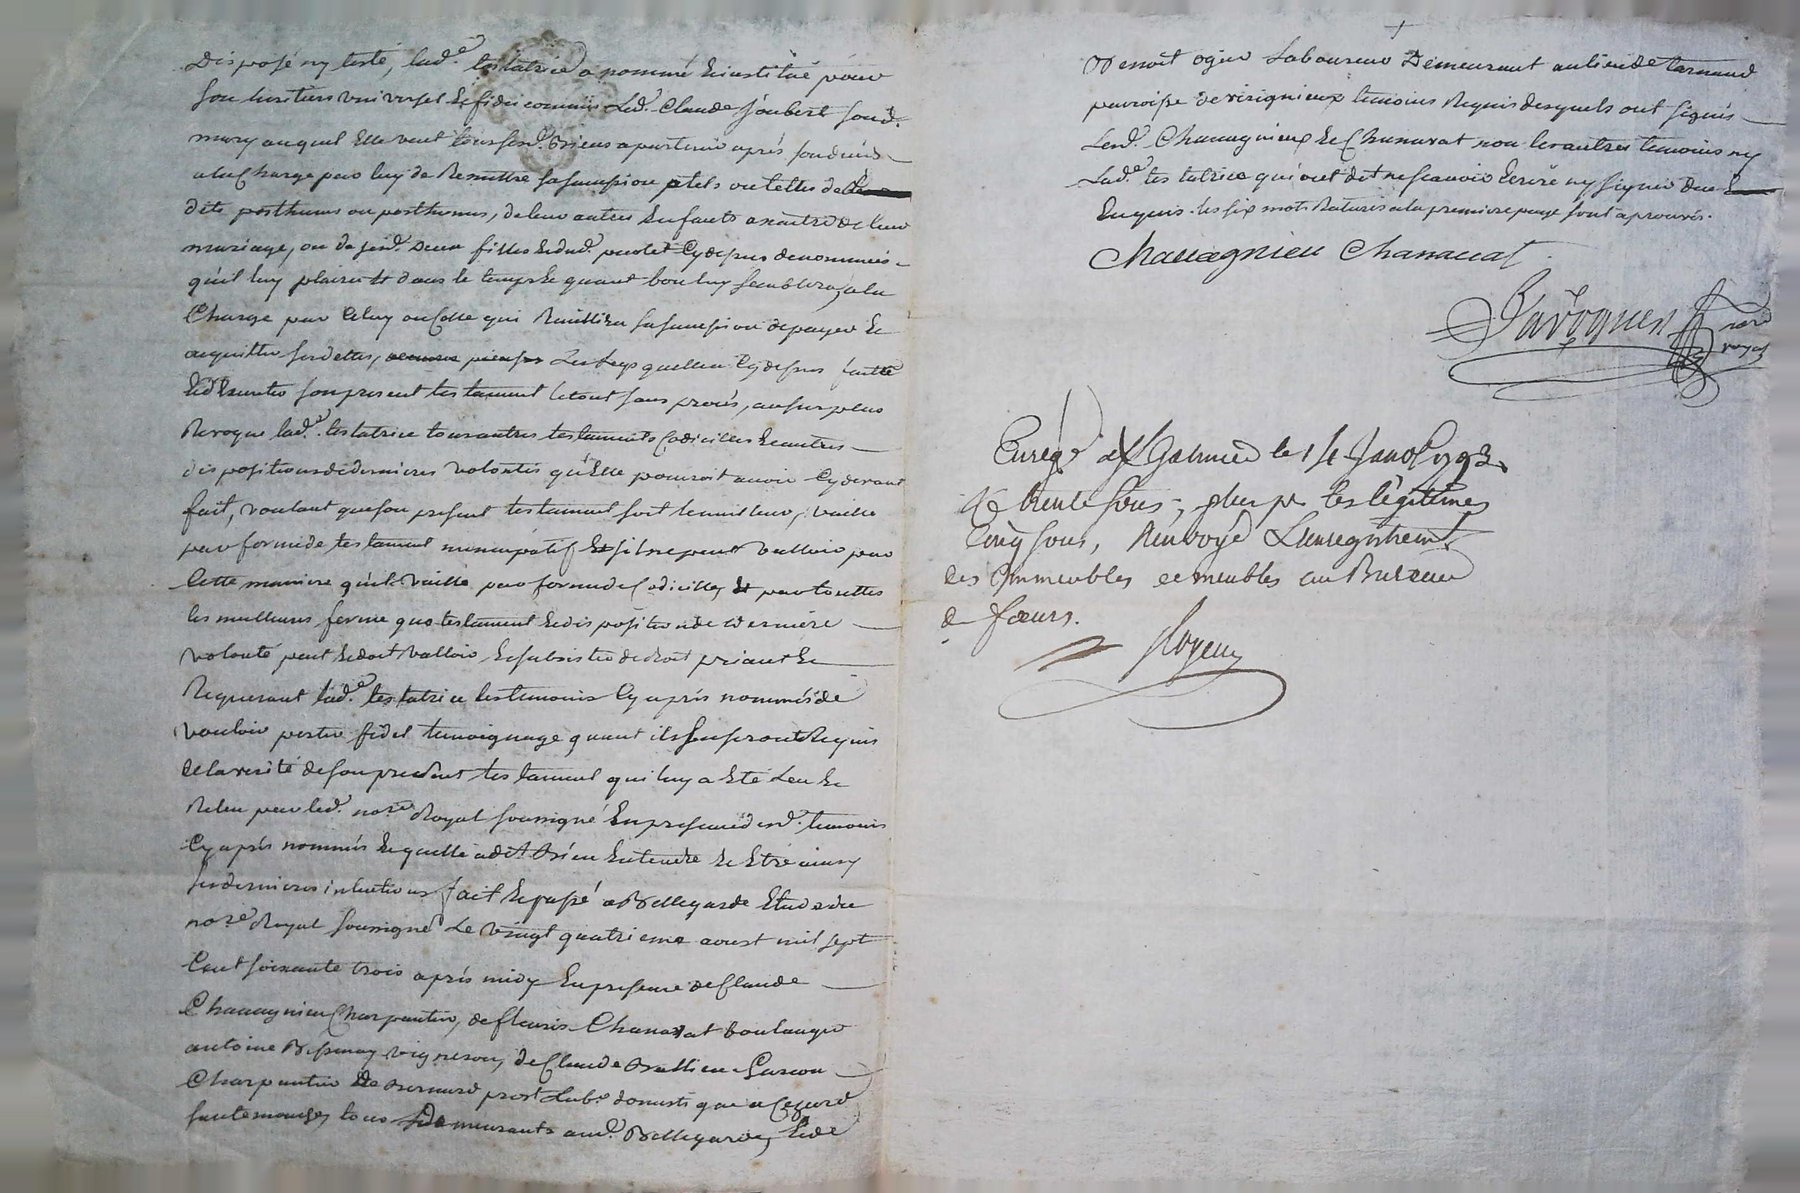 Disposé ny testé, lad.e testatrice a nommé & institué pour
son heritier universel & fidei commis Led. Claude Joubert sond.
mary auquel Elle veut tous sesd. Biens apartenir aprés son decés
a la Charge par luy de Remettre sa succession a tels ou telles de
dits posthumes ou posthumes, de leur autres Enfants a naitre de leur
mariage, ou de sesd. Deux filles & dud. Cydessus denommées
qu'il luy plairat & dans le temps & quant bon luy semblera, a la
Charge par Celuy ou Celle qui Recüillira sa succession de payer &
acquitter ses dettes, Les Legs quelle a Cydessus faits
& d'Executer son present testament le tout sans procés, au surplus
Revoque lad.e testatrice tous autres testaments Codicilles & autres
dispositions de dernieres volontés qu'Elle pourroit avoir Cydevant
fait, voulant que son present testament soit le meilleur, vaille
par forme de testament nuncupatif & s'il ne peut valloir par
Cette maniere qu'il vaille par forme de Codicilles & par touttes
les meilleures forme que testament & disposition de derniére
volonté peut & doit valloir & subsister de droit priant &
Requerant lad.e testatrice les temoins Cy aprés nommés de
vouloir porter fidel temoignage quant ils en seront Requis
de la verité de son present testament qui luy a Eté Leu &
Releu par led. no.re Royal soussigné En presence desd. temoins
Cy aprés nommés & quelle a dit Bien Entendre & Etre ainsy
ses dernieres intentions fait & passé a Bellegarde Etude du
no.re Royal soussigné Le vingt quatrieme aoust mil sept
Cent soixante trois aprés midy En presence de Claude
Chavagnieu Charpentier, de fleuris Chanavat boulanger
antoine vigneron, de Claude Garcon
Charpentier De Bernard prost Lab.r domestique a
tous Demeurants aud. Bellegarde, & de
Benoit ogier Laboureur Demeurant au lieu de
parroisse de temoins Requis desquels ont signés
Lesd. Chavagnieux & Chanavat non les autres temoins ny
Lad.e testatrice qui ont dit ne scavoir Ecrire ny signer De
Enquis. les six mots Raturés a la premiere page sont aprouvés.
Chavagnieu Chanavat
no.re
royal
Enreg.é a S.t Galmier le 14 Janv. 1793
R trente sous, plus p.r les légitimes
Cinq sous, Renvoyé L'enregistrem.t
des immeubles et meubles au Bureau
de feurs.